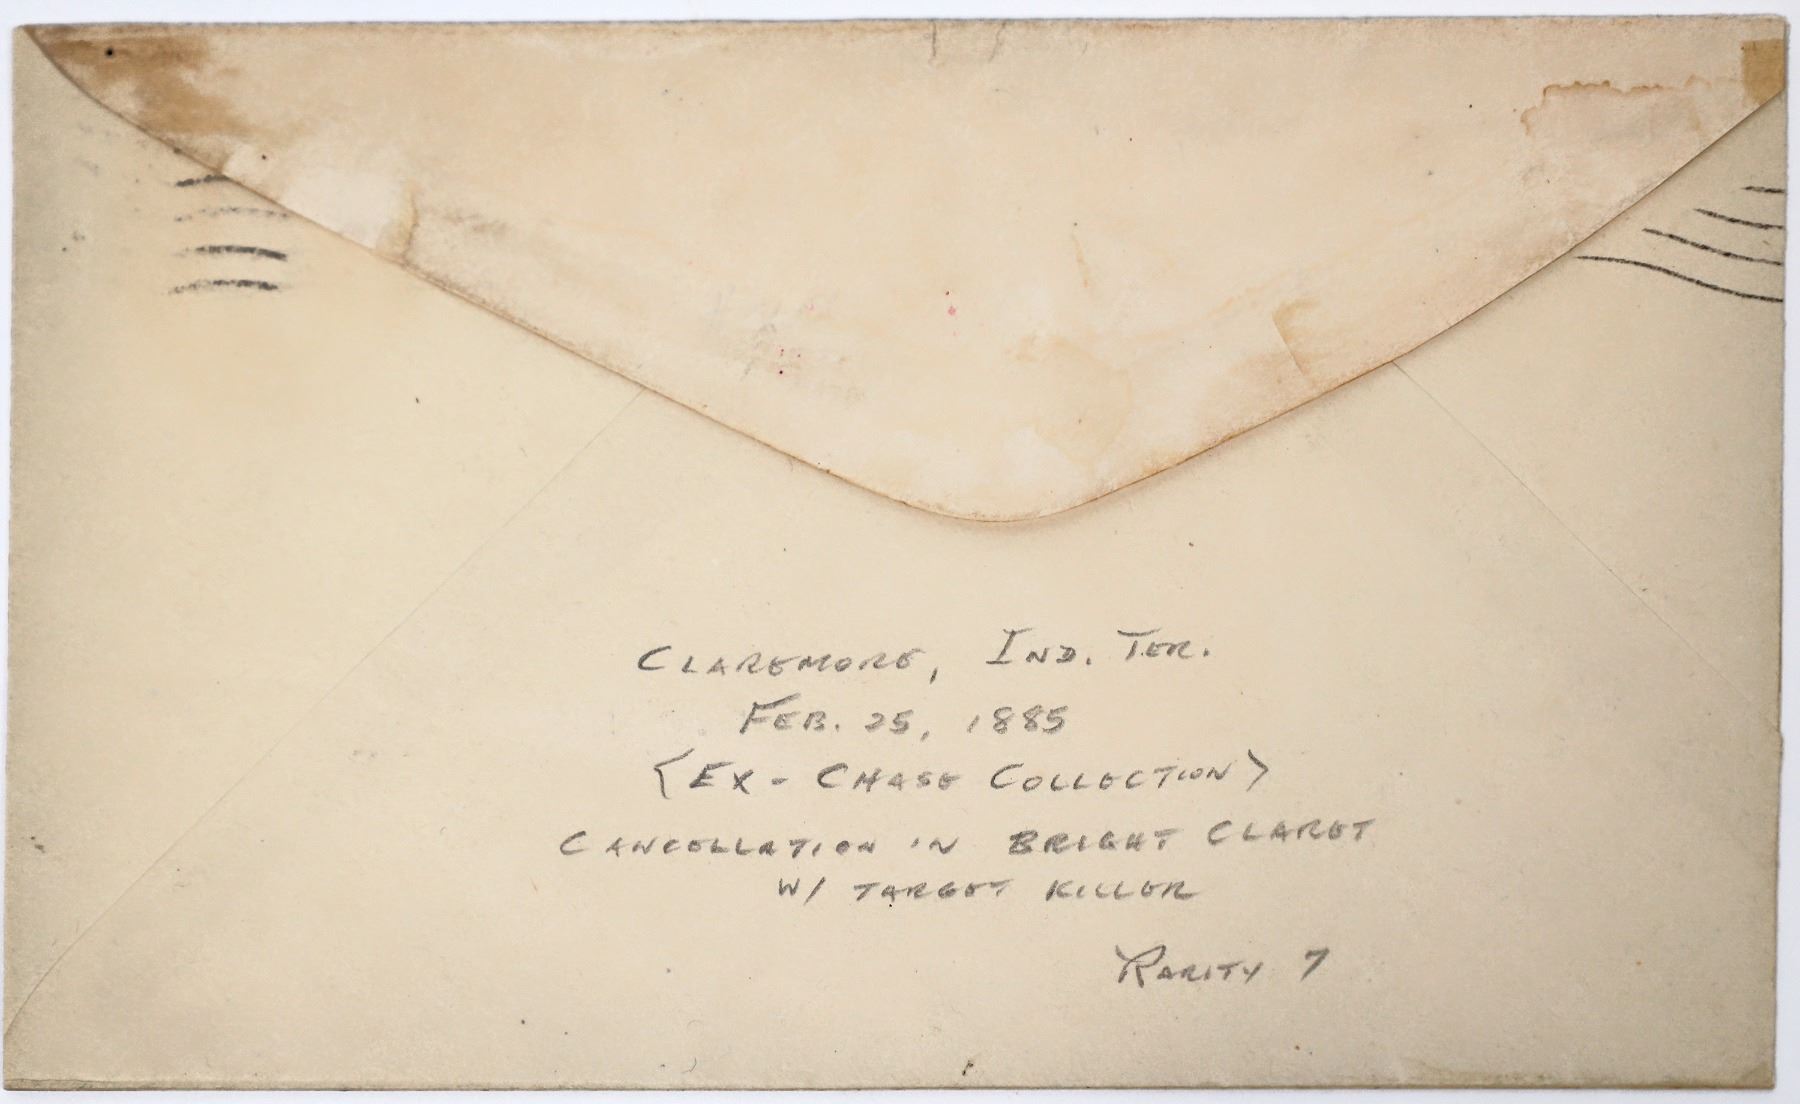 CLAREMORE, IND. TER.
FEB. 25, 1885
<EX - CHASE COLLECTION>
CANCELLATION IN BRIGHT CLARET
W/ TARGET KILLER
RARITY 7